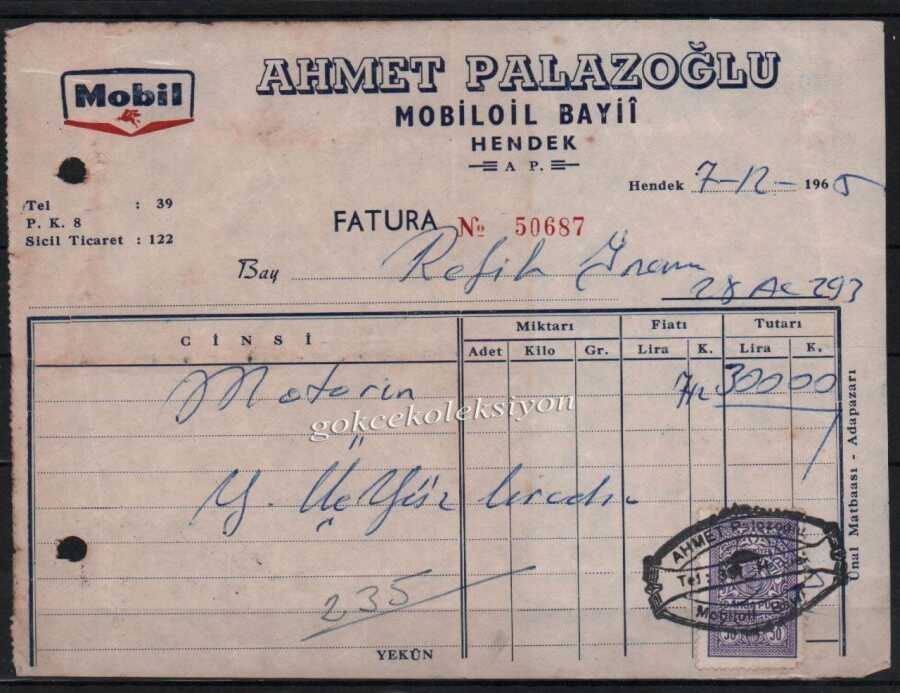 Mobil
AHMET PALAZOĞLU
MOBİLOİL BAYİÎ
HENDEK
A P.
Hendek 7-12-1965
Tel : 39
P. K. 8
Sicil Ticaret : 122
FATURA № 50687
Bay Refik
28 AC 293
CİNSİ Miktarı Fiatı Tutarı
Adet Kilo Gr. Lira K. Lira K.
Motorin 300 00
gokcekoleksiyon
Y. Üç Yüz liradır
235
AHMET Palazoğlu
Tel:
Mobiloil Bayii
50 50
YEKÛN
Ünal Matbaası - Adapazarı